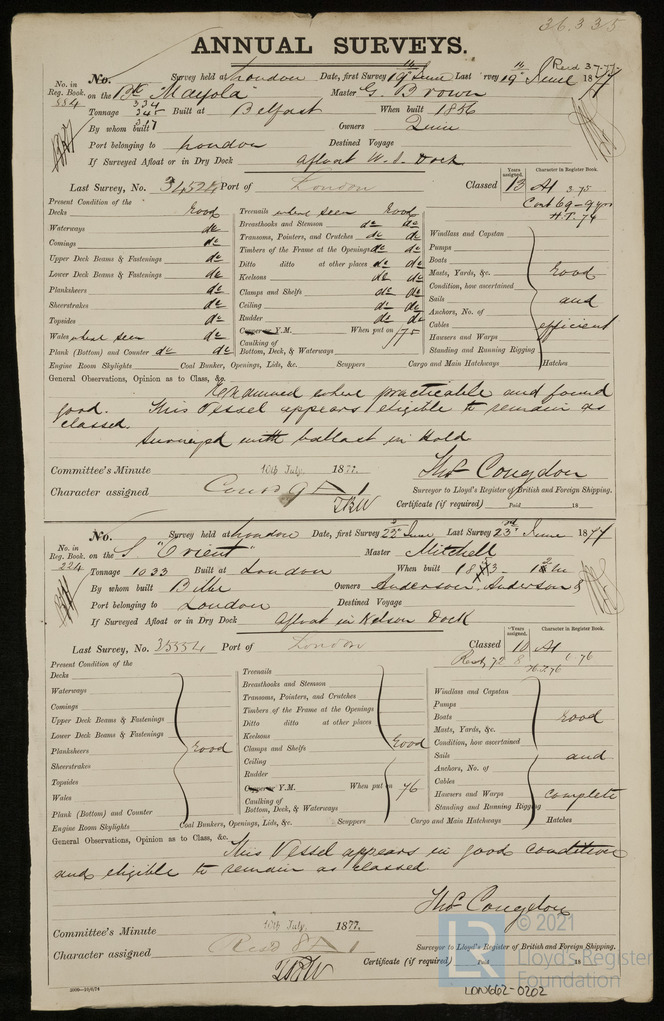 36.335
ANNUAL SURVEYS.
Recd 3-7-77
No. Survey held at London Date, first Survey 19th June Last Survey 19th June 1877
No. in Reg. Book. 554 on the Bk "Mayola" Master G. Brown
334
Tonnage 345 Built at Belfast When built 1856
By whom built Owners
Port belonging to London Destined Voyage
If Surveyed Afloat or in Dry Dock Afloat W. I. Dock
Last Survey, No. 34524 Port of London Classed Years assigned. 13 Character in Register Book. A1 3.75
Cont 69-9yrs
H.T. 74
Present Condition of the
Decks Good
Waterways do
Comings do
Upper Deck Beams & Fastenings do
Lower Deck Beams & Fastenings do
Planksheers do
Sheerstrakes do
Topsides do
Wales where seen do
Plank (Bottom) and Counter do do
Treenails where seen Good
Breasthooks and Stemson do do
Transoms, Pointers, and Crutches do do
Timbers of the Frame at the Openings do do
Ditto ditto at other places do do
Keelsons do do
Clamps and Shelfs do do
Ceiling do do
Rudder do do
Copper or Y.M. When put on /75
Caulking of Bottom, Deck, & Waterways
Windlass and Capstan
Pumps
Boats
Masts, Yards, &c. Good
Condition, how ascertained
Sails and
Anchors, No. of
Cables efficient
Hawsers and Warps
Standing and Running Rigging
Engine Room Skylights Coal Bunker, Openings, Lids, &c. Scuppers Cargo and Main Hatchways Hatches
General Observations, Opinion as to Class, &c.
Examined where practicable and found
good. This Vessel appears eligible to remain as
classed.
Surveyed with ballast in Hold
Committee's Minute 10th July, 1877.
Thos Congdon
Character assigned Cont 9 A 1
Surveyor to Lloyd's Register of British and Foreign Shipping.
TBW
Certificate (if required) Paid 18
No. Survey held at London Date, first Survey 23rd June Last Survey 23rd June 1877
No. in Reg. Book. 224 on the S "Orient" Master Mitchell
Tonnage 1033 Built at London When built
By whom built Owners Anderson, Anderson &
Port belonging to London Destined Voyage
If Surveyed Afloat or in Dry Dock Afloat in Nelson Dock
Last Survey, No. 35554 Port of London Classed Years assigned. 10 Character in Register Book. A1 6.76
Rest 72 8
Present Condition of the
Decks
Waterways
Comings
Upper Deck Beams & Fastenings
Lower Deck Beams & Fastenings
Planksheers Good
Sheerstrakes
Topsides
Wales
Plank (Bottom) and Counter
Treenails
Breasthooks and Stemson
Transoms, Pointers, and Crutches
Timbers of the Frame at the Openings
Ditto ditto at other places
Keelsons
Clamps and Shelfs Good
Ceiling
Rudder
Copper or Y.M. When put on 76
Caulking of Bottom, Deck, & Waterways
Windlass and Capstan
Pumps
Boats Good
Masts, Yards, &c.
Condition, how ascertained
Sails and
Anchors, No. of
Cables
Hawsers and Warps complete
Standing and Running Rigging
Engine Room Skylights Coal Bunkers, Openings, Lids, &c. Scuppers Cargo and Main Hatchways Hatches
General Observations, Opinion as to Class, &c.
This Vessel appears in good condition
and eligible to remain as classed
Thos Congdon
Committee's Minute 10th July, 1877.
Character assigned Rest 8 A 1
Surveyor to Lloyd's Register of British and Foreign Shipping.
TBW
Certificate (if required) Paid 18
LR © 2021 Lloyd's Register Foundation
LON662-0202